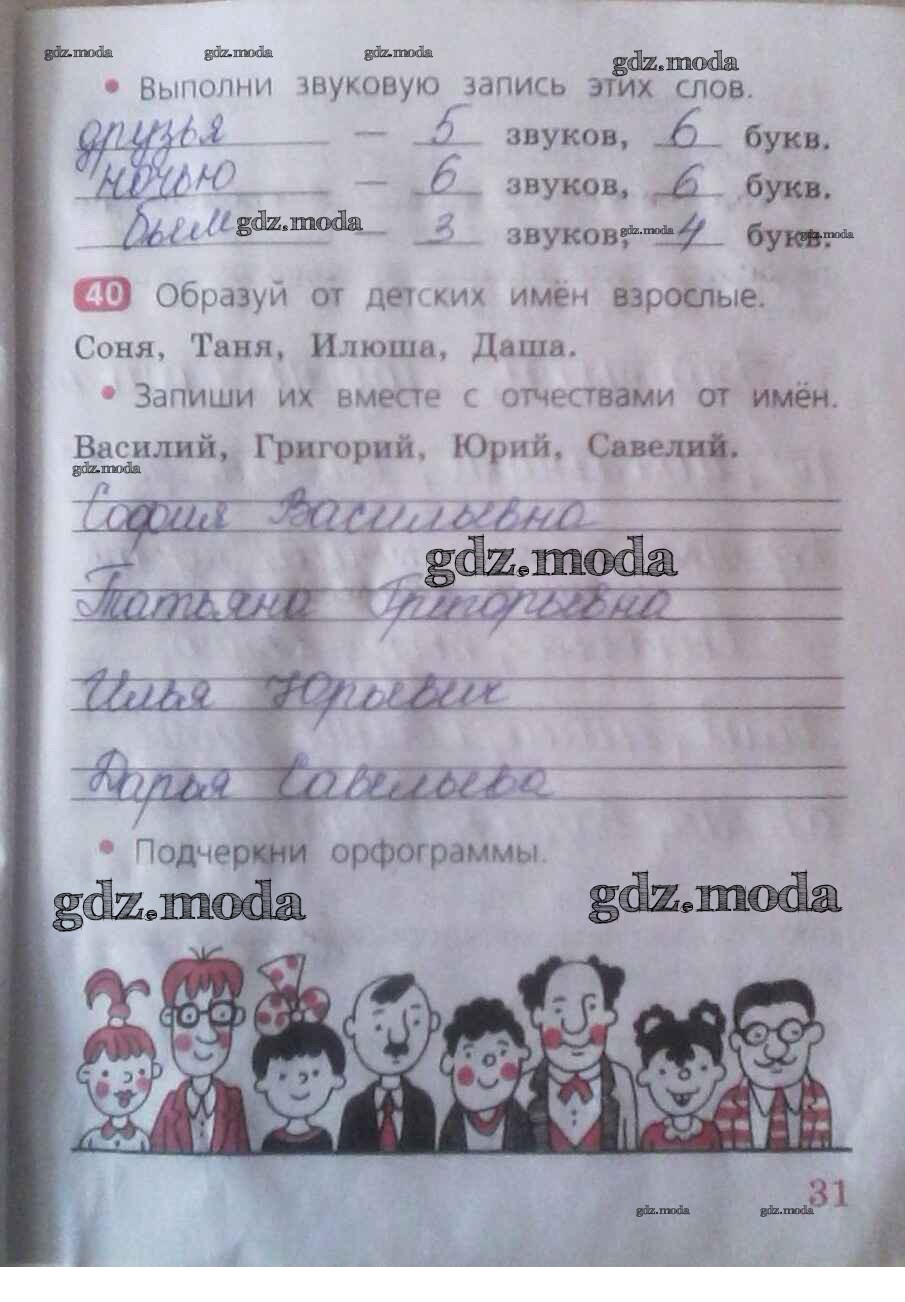 gdz.moda gdz.moda gdz.moda gdz.moda
• Выполни звуковую запись этих слов.
друзья — 5 звуков, 6 букв.
ночью — 6 звуков, 6 букв.
бьем gdz.moda — 3 звуков, gdz.moda 4 букв. gdz.moda
40 Образуй от детских имён взрослые.
Соня, Таня, Илюша, Даша.
• Запиши их вместе с отчествами от имён.
Василий, Григорий, Юрий, Савелий.
gdz.moda
София Васильевна
gdz.moda
Татьяна Григорьевна
Илья Юрьевич
Дарья Савельева
• Подчеркни орфограммы.
gdz.moda gdz.moda
31
gdz.moda gdz.moda